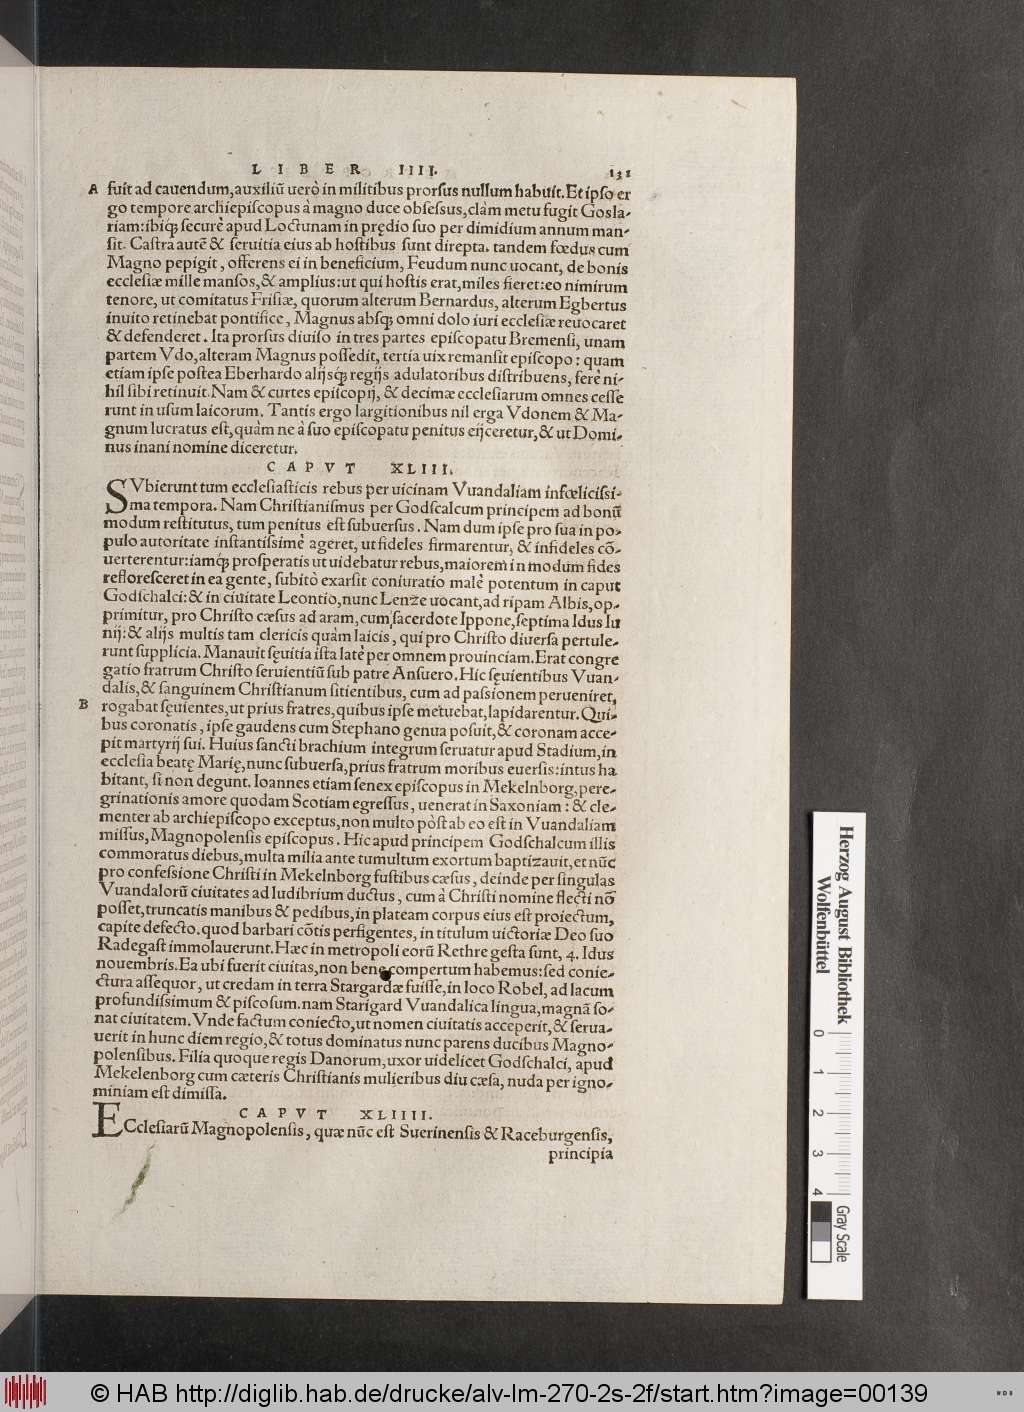 LIBER IIII. 131
A fuit ad cauendum, auxiliũ uerò in militibus prorſus nullum habuit. Et ipſo er
go tempore archiepiſcopus à magno duce obſeſsus, clàm metu fugit Goſla-
riam: ibiq́ꝫ ſecurè apud Loctunam in prędio ſuo per dimidium annum man-
ſit. Caſtra autẽ & ſeruitia eius ab hoſtibus ſunt direpta. tandem fœdus cum
Magno pepigit, offerens ei in beneficium, Feudum nunc uocant, de bonis
eccleſiæ mille manſos, & amplius: ut qui hoſtis erat, miles fieret: eo nimirum
tenore, ut comitatus Friſiæ, quorum alterum Bernardus, alterum Egbertus
inuito retinebat pontifice, Magnus abſq́ꝫ omni dolo iuri eccleſiæ reuocaret
& defenderet. Ita prorſus diuiſo in tres partes epiſcopatu Bremenſi, unam
partem Vdo, alteram Magnus poſſedit, tertia uix remanſit epiſcopo: quam
etiam ipſe poſtea Eberhardo alijsq́ꝫ regijs adulatoribus diſtribuens, ferè ni-
hil ſibi retinuit. Nam & curtes epiſcopij, & decimæ eccleſiarum omnes ceſſe
runt in uſum laicorum. Tantis ergo largitionibus nil erga Vdonem & Ma-
gnum lucratus eſt, quàm ne à ſuo epiſcopatu penitus eijceretur, & ut Domi-
nus inani nomine diceretur.
CAPVT XLIII.
SVbierunt tum eccleſiaſticis rebus per uicinam Vuandaliam infœliciſsi-
ma tempora. Nam Chriſtianiſmus per Godſcalcum principem ad bonũ
modum reſtitutus, tum penitus eſt ſubuerſus. Nam dum ipſe pro ſua in po-
pulo autoritate inſtantiſsimè ageret, ut fideles firmarentur, & infideles cõ-
uerterentur: iamq́ꝫ proſperatis ut uidebatur rebus, maiorem in modum fides
refloreſceret in ea gente, ſubitò exarſit coniuratio malè potentum in caput
Godſchalci: & in ciuitate Leontio, nunc Lenze uocant, ad ripam Albis, op-
primitur, pro Chriſto cæſus ad aram, cum ſacerdote Ippone, ſeptima Idus Iu
nij: & alijs multis tam clericis quàm laicis, qui pro Chriſto diuerſa pertule-
runt ſupplicia. Manauit ſęuitia iſta latè per omnem prouinciam. Erat congre
gatio fratrum Chriſto ſeruientiũ ſub patre Anſuero. Hic ſęuientibus Vuan-
dalis, & ſanguinem Chriſtianum ſitientibus, cum ad paſsionem perueniret,
B rogabat ſęuientes, ut prius fratres, quibus ipſe metuebat, lapidarentur. Qui-
bus coronatis, ipſe gaudens cum Stephano genua poſuit, & coronam acce-
pit martyrij ſui. Huius ſancti brachium integrum ſeruatur apud Stadium, in
eccleſia beatę Marię, nunc ſubuerſa, prius fratrum moribus euerſis: intus ha
bitant, ſi non degunt. Ioannes etiam ſenex epiſcopus in Mekelnborg, pere-
grinationis amore quodam Scotiam egreſſus, uenerat in Saxoniam: & cle-
menter ab archiepiſcopo exceptus, non multo pòſt ab eo eſt in Vuandaliam
miſſus, Magnopolenſis epiſcopus. Hic apud principem Godſchalcum illis
commoratus diebus, multa milia ante tumultum exortum baptizauit, et nũc
pro confeſsione Chriſti in Mekelnborg fuſtibus cæſus, deinde per ſingulas
Vuandalorũ ciuitates ad ludibrium ductus, cum à Chriſti nomine flecti nõ
poſſet, truncatis manibus & pedibus, in plateam corpus eius eſt proiectum,
capite deſecto. quod barbari cõtis perfigentes, in titulum uictoriæ Deo ſuo
Radegaſt immolauerunt. Hæc in metropoli eorũ Rethre geſta ſunt, 4. Idus
nouembris. Ea ubi fuerit ciuitas, non bene compertum habemus: ſed conie-
ctura aſſequor, ut credam in terra Stargardæ fuiſſe, in loco Robel, ad lacum
profundiſsimum & piſcoſum. nam Starigard Vuandalica lingua, magnã ſo-
nat ciuitatem. Vnde factum coniecto, ut nomen ciuitatis acceperit, & ſerua-
uerit in hunc diem regio, & totus dominatus nunc parens ducibus Magno-
polenſibus. Filia quoque regis Danorum, uxor uidelicet Godſchalci, apud
Mekelenborg cum cæteris Chriſtianis mulieribus diu cæſa, nuda per igno-
miniam eſt dimiſſa.
CAPVT XLIIII.
ECcleſiarũ Magnopolenſis, quæ nũc eſt Suerinenſis & Raceburgenſis,
principia
Herzog August Bibliothek
Wolfenbüttel
0 1 2 3 4
Gray Scale
© HAB http://diglib.hab.de/drucke/alv-lm-270-2s-2f/start.htm?image=00139